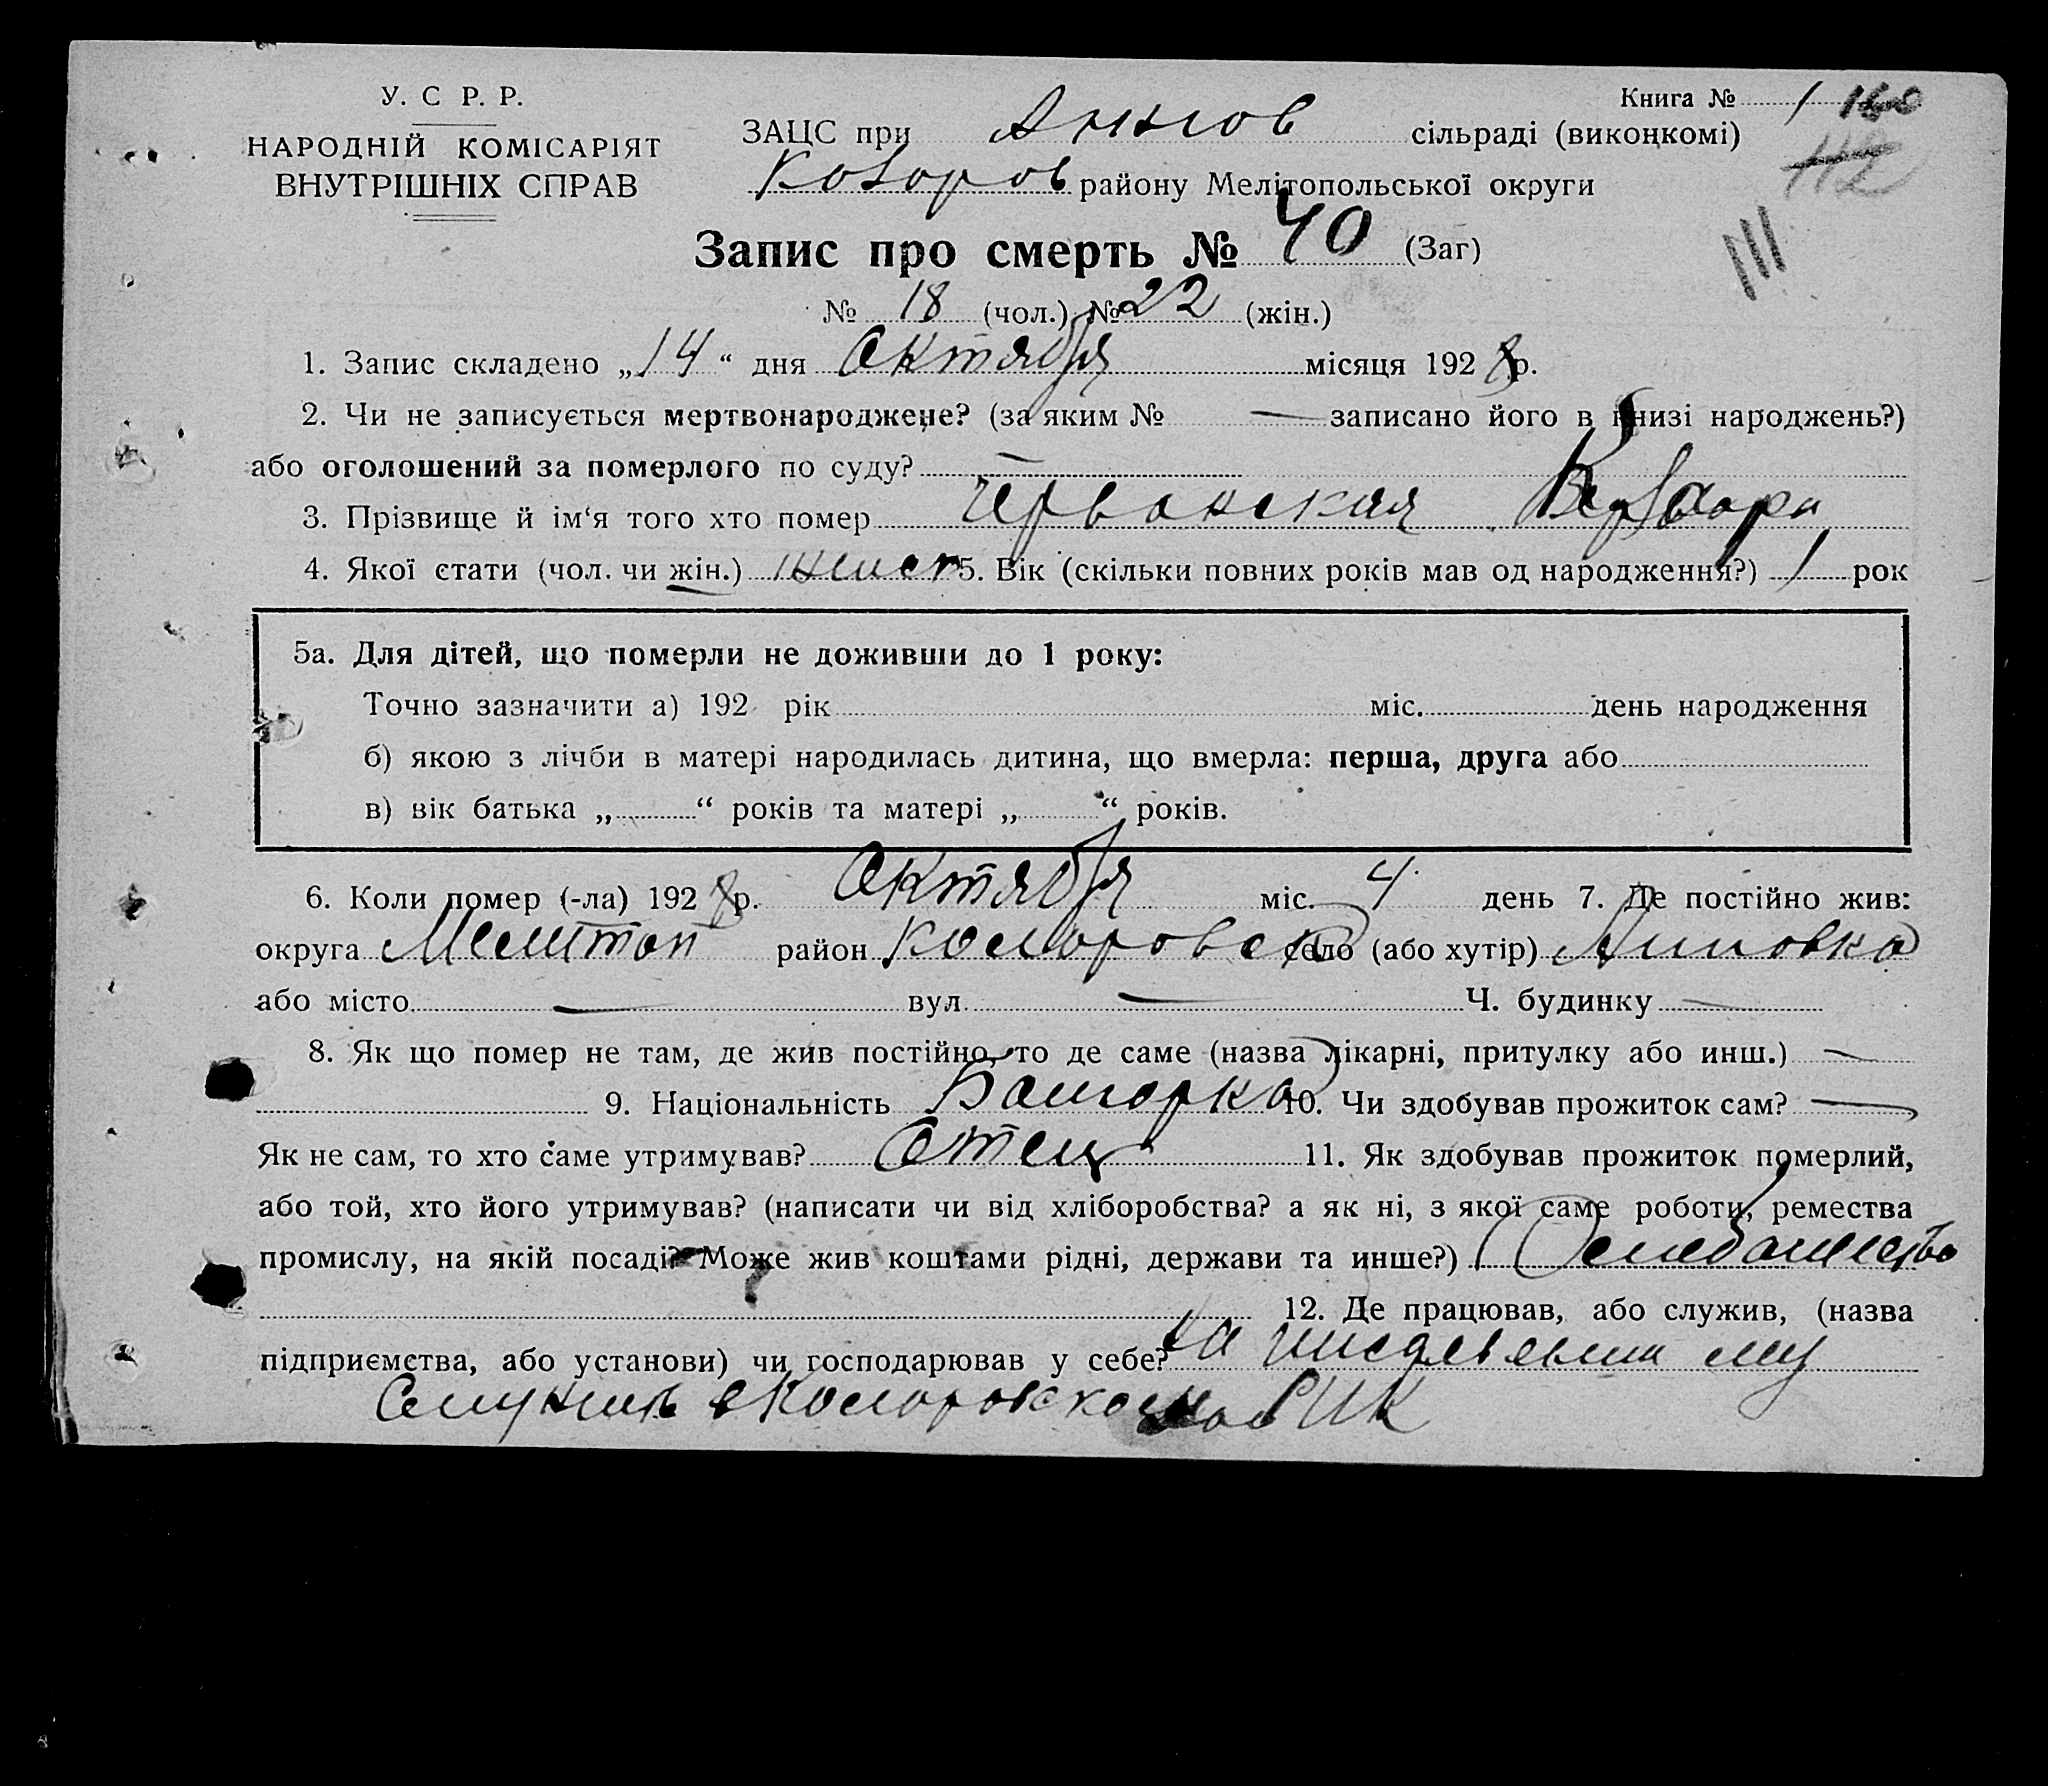 У. С Р. Р.
НАРОДНІЙ КОМІСАРІЯТ
ВНУТРІШНІХ СПРАВ
Книга № 1 160
112
ЗАЦС при сільраді (виконкомі)
району Мелітопольської округи
Запис про смерть № 40 (Заг)
№ 18 (чол.) № 22 (жін.)
1. Запис складено „14“ дня Октября місяця 1928 р.
2. Чи не записується мертвонароджене? (за яким № — записано його в книзі народжень?)
або оголошений за померлого по суду? —
3. Прізвище й ім‘я того хто помер
4. Якої стати (чол. чи жін.) женск 5. Вік (скільки повних років мав од народження?) 1 рок
5а. Для дітей, що померли не доживши до 1 року:
Точно зазначити а) 192 рік міс. день народження
б) якою з лічби в матері народилась дитина, що вмерла: перша, друга або
в) вік батька „ “ років та матері „ “ років.
6. Коли помер (-ла) 1928 р. Октября міс. 4 день 7. Де постійно жив:
округа Мелитоп район село (або хутір)
або місто — вул. — Ч. будинку —
8. Як що помер не там, де жив постійно, то де саме (назва лікарні, притулку або инш.) —
9. Національність Болгарка 10. Чи здобував прожиток сам? —
Як не сам, то хто саме утримував? Отец 11. Як здобував прожиток померлий,
або той, хто його утримував? (написати чи від хліборобства? а як ні, з якої саме роботи, ремества
промислу, на якій посаді? Може жив коштами рідні, держави та инше?)
12. Де працював, або служив, (назва
підприємства, або установи) чи господарював у себе?
РИК